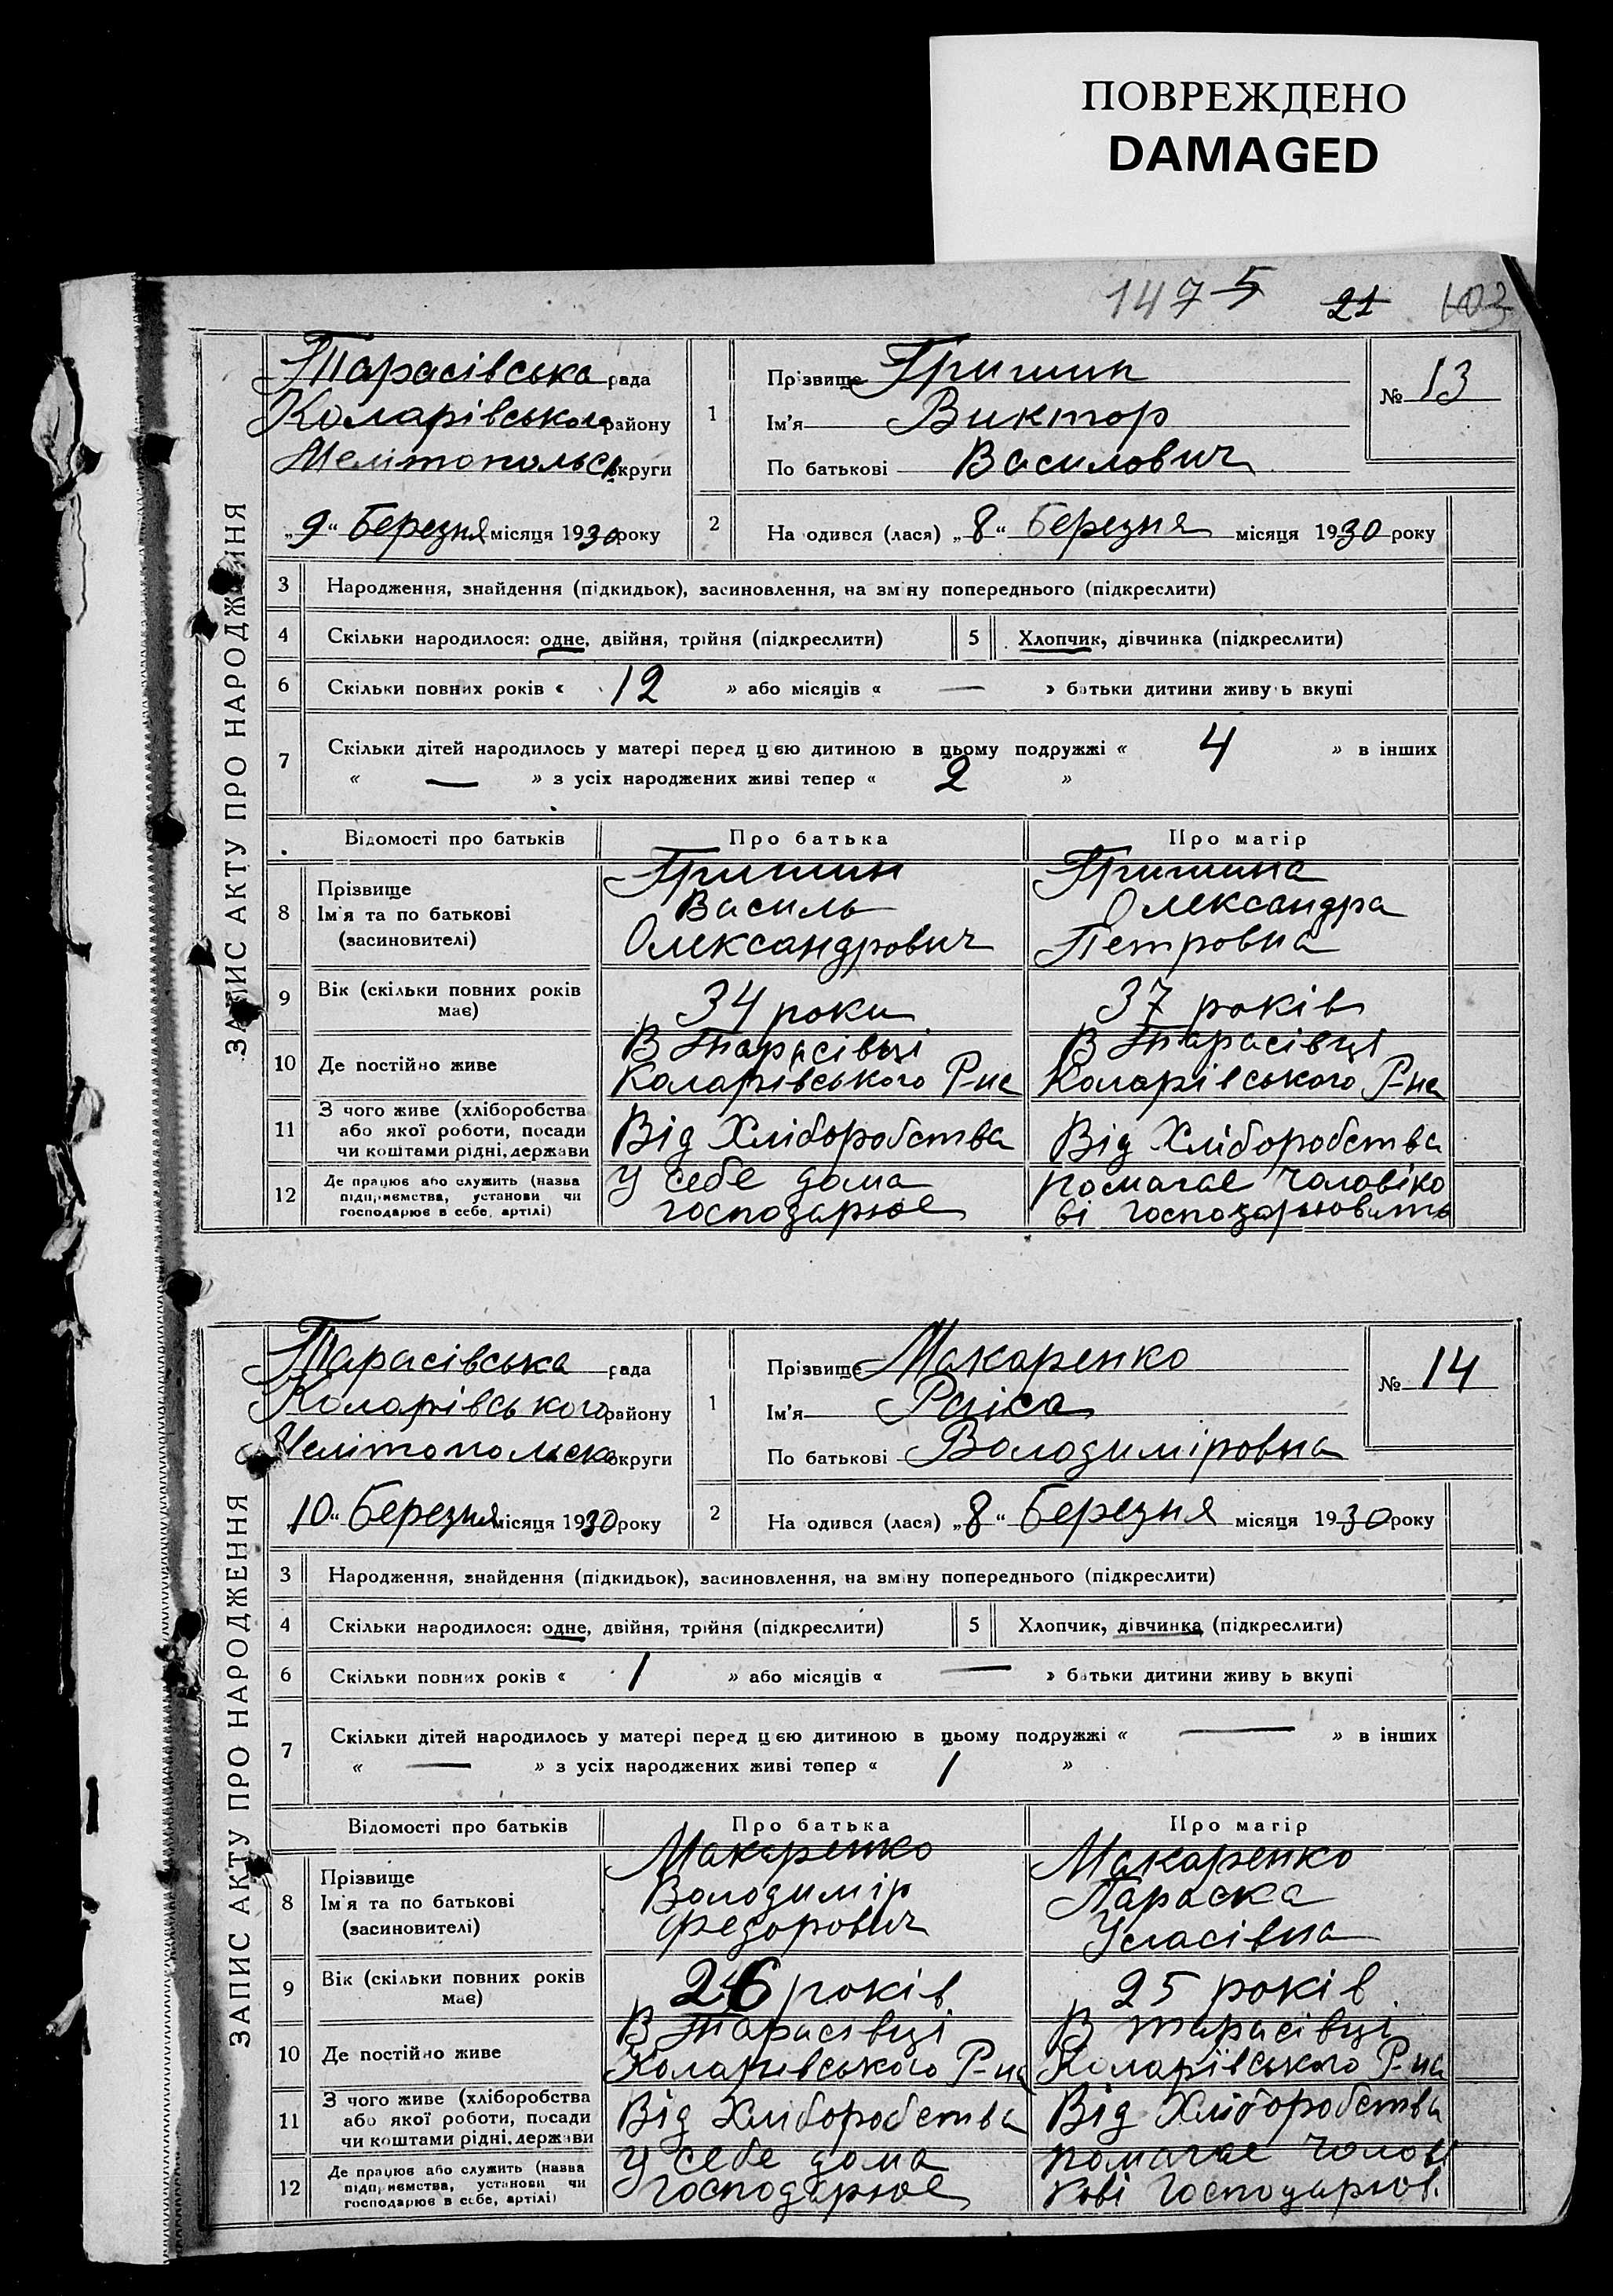 ПОВРЕЖДЕНО
DAMAGED
147 5 21 103
ЗАПИС АКТУ ПРО НАРОДЖЕННЯ
Тарасівська рада
Коларівського району
Мелітопольск округи
„9“ Березня місяця 1930 року
1
Прізвище Гришин
Ім'я Виктор
По батькові Василович
№ 13
2 На одився (лася) „8“ Березня місяця 1930 року
3 Народження, знайдення (підкидьок), засиновлення, на зміну попереднього (підкреслити)
4 Скільки народилося: одне, двійня, трійня (підкреслити) 5 Хлопчик, дівчинка (підкреслити)
6 Скільки повних років « 12 » або місяців « — » батьки дитини живу ь вкупі
7 Скільки дітей народилось у матері перед цією дитиною в цьому подружжі « 4 » в інших
« — » з усіх народжених живі тепер « 2 »
Відомості про батьків Про батька Про матір
8 Прізвище
Ім'я та по батькові
(засиновителі)
Гришин
Василь
Олександрович
Гришина
Олександра
Петровна
9 Вік (скільки повних років
має)
34 роки 37 років
10 Де постійно живе
В Тарасівці
Коларівського Р-на
В Тарасівці
Коларівського Р-на
11 З чого живе (хліборобства
або якої роботи, посади
чи коштами рідні, держави
Від Хліборобства Від Хліборобства
12 Де працює або служить (назва
підприємства, установи чи
господарює в себе, артілі)
У себе дома
господарює
помагає чоловіко
ві господарювать
ЗАПИС АКТУ ПРО НАРОДЖЕННЯ
Тарасівська рада
Коларівського району
Мелітопольско округи
10“ Березня місяця 1930 року
1
Прізвище Макаренко
Ім'я Раіса
По батькові Володиміровна
№ 14
2 На одився (лася) „8“ Березня місяця 1930 року
3 Народження, знайдення (підкидьок), засиновлення, на зміну попереднього (підкреслити)
4 Скільки народилося: одне, двійня, трійня (підкреслити) 5 Хлопчик, дівчинка (підкреслити)
6 Скільки повних років « 1 » або місяців « — » батьки дитини живу ь вкупі
7 Скільки дітей народилось у матері перед цією дитиною в цьому подружжі « — » в інших
« — » з усіх народжених живі тепер « 1 »
Відомості про батьків Про батька Про матір
8 Прізвище
Ім'я та по батькові
(засиновителі)
Макаренко
Володимір
Федорович
Макаренко
Параска
Уласівна
9 Вік (скільки повних років
має)
26 років 25 років
10 Де постійно живе
В Тарасівці
Коларівського Р-на
В тарасівці
Коларівського Р-на
11 З чого живе (хліборобства
або якої роботи, посади
чи коштами рідні, держави
Від Хліборобства Від Хліборобства
12 Де працює або служить (назва
підприємства, установи чи
господарює в себе, артілі)
У себе дома
господарює
помагає чолові
кові господарюв.